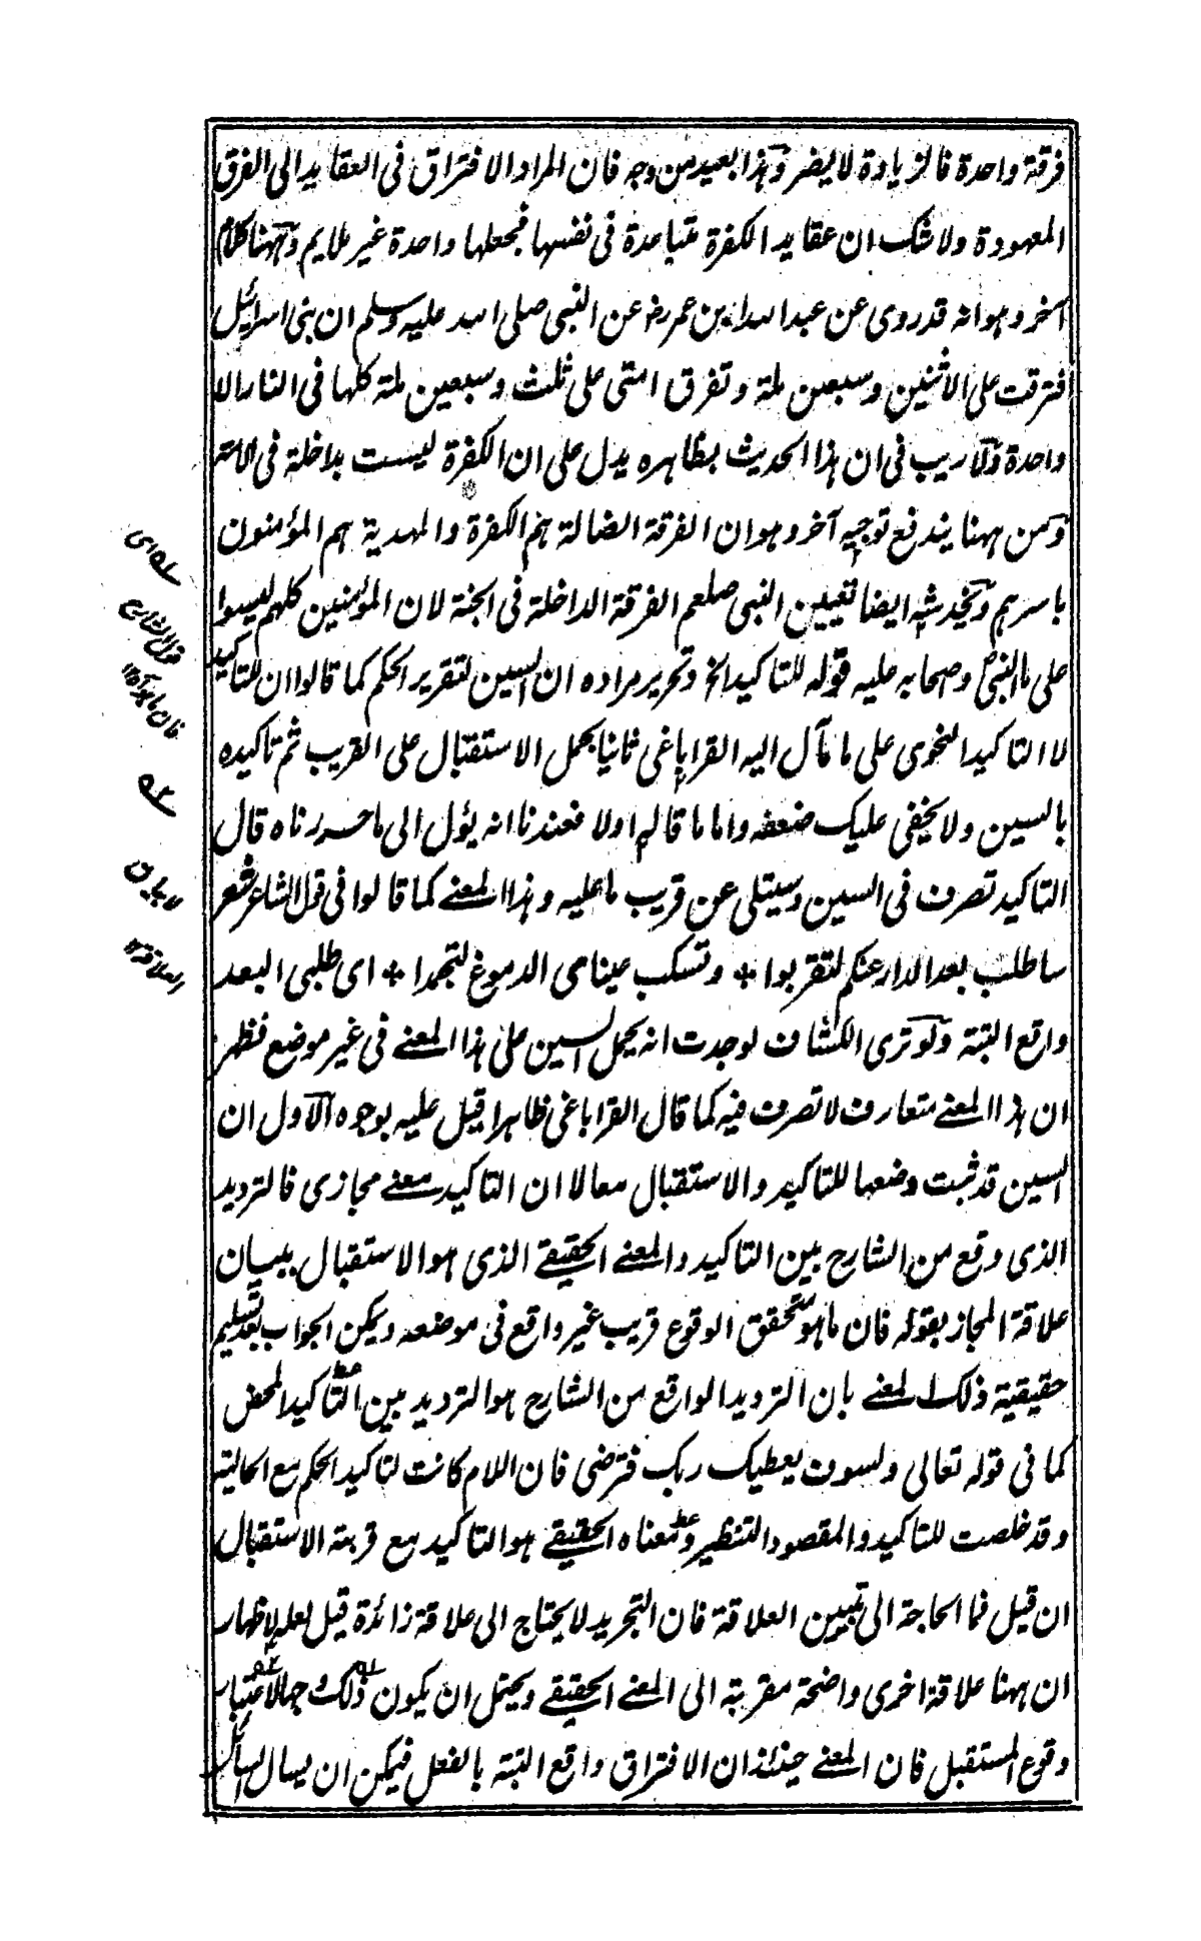 فرقة واحدة فالزيادة لا يضر وهذا بعيد من وجه فان المراد الافتراق فى العقايد الى الفرق
المعهودة ولا شك ان عقايد الكفرة متباعدة فى نفسها فجعلها واحدة غير ملايم وههنا كلام
آخر وهو انه قد روى عن عبد الله بن عمر رض عن النبى صلى الله عليه وسلم ان بنى اسرائيل
افترقت على الاثنين وسبعين ملة وتفرق امتى على ثلث وسبعين ملة كلها فى النار الا
واحدة ولا ريب فى ان هذا الحديث بظاهره يدل على ان الكفرة ليست بداخلة فى الامة
ومن ههنا يندفع توجيه آخر وهو ان الفرقة الضالة هم الكفرة والمهدية هم المؤمنون
باسرهم ويخدشه ايضا تعيين النبى صلعم الفرقة الداخلة فى الجنة لان المؤمنين كلهم ليسوا
على ما النبى ص وصحابه عليه قوله للتاكيد الخ وتحرير مراده ان السين لتقرير الحكم كما قالوا ان للتاكيد
لا التاكيد النحوى على ما مآل اليه القراباغى ثانيا بحمل الاستقبال على القريب ثم تاكيده
بالسين ولا يخفى عليك ضعفه واما ما قاله اولا فعندنا انه يؤل الى ما حررناه قال
التاكيد تصرف فى السين وسيتلى عن قريب ما عليه وهذا المعنے كما قالوا فى قول الشاعر شعر
ساطلب بعد الدار عنكم لتقربوا + وتسكب عيناى الدموع لتجمدا + اى طلبى البعد
واقع البتة ولو ترى الكشاف لوجدت انه يحمل السين على هذا المعنے فى غير موضع فظهر
ان هذا المعنے متعارف لا تصرف فيه كما قال القراباغى ظاهرا قيل عليه بوجوه الاول ان
السين قد ثبت وضعها للتاكيد والاستقبال معا لا ان التاكيد معنے مجازى فالترديد
الذى وقع من الشارح بين التاكيد والمعنے الحقيقے الذى هو الاستقبال ببيان
علاقة المجاز بقوله فان ما هو متحقق الوقوع قريب غير واقع فى موضعه ويمكن الجواب بعد تسليم
حقيقية ذلك المعنے بان الترديد الواقع من الشارح هو الترديد بين التاكيد المحض
كما فى قوله تعالى ولسوف يعطيك ربك فترضى فان اللام كانت لتاكيد الحكم مع الحالية
وقد خلصت للتاكيد والمقصود التنظير ومعناه الحقيقے هو التاكيد مع قربة الاستقبال
ان قيل فما الحاجة الى تبيين العلاقة فان التجريد لا يحتاج الى علاقة زائدة قيل لعله لاظهار
ان ههنا علاقة اخرى واضحة مقربة الى المعنے الحقيقے ويحتمل ان يكون ذلك جهالاعتبار
وقوع المستقبل فان المعنے حينئذ ان الافتراق واقع البتة بالفعل فيمكن ان يسال السائل
اى
قول الشارح
فان ما هو آه ١٢
بيان
العلاقة ١٢